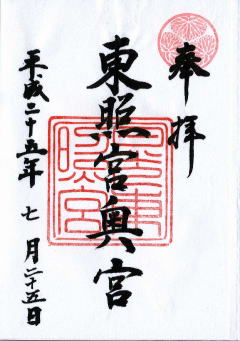 奉拝
東照宮奥宮
平成二十五年 七月二十五日